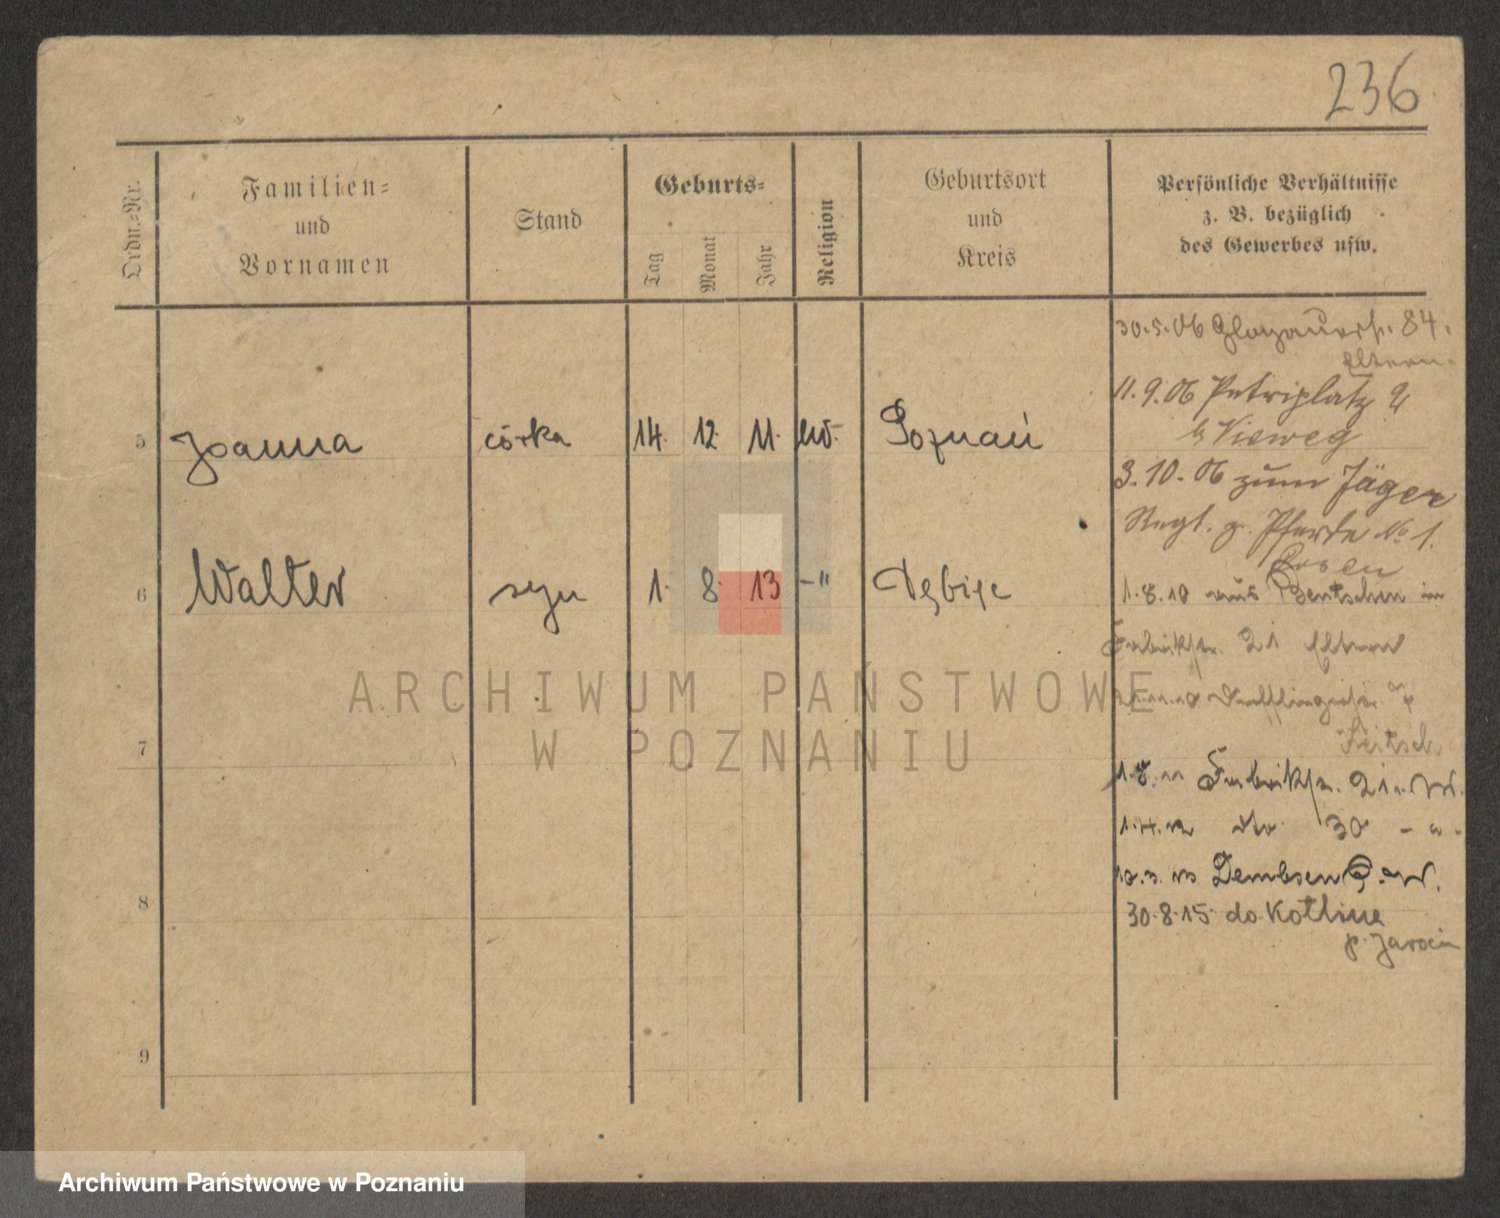 236
Ordn.-Nr.
Familien-
und
Vornamen
Stand
Geburts-
Tag
Monat
Jahr
Religion
Geburtsort
und
Kreis
Persönliche Verhältnisse
z. B. bezüglich
des Gewerbes usw.
5 Joanna córka 14. 12. 11. Poznań
6 Walter syn 1. 8. 13 -" Dębiec
7
8
9
30.5.06 Glogauerstr. 84.
Eltern
11.9.06 Petriplatz
b Vieweg
3.10.06 zum Jäger
Regt. z. Pferde No 1.
Posen
1.8.10 aus Bentschen in
Fabrikstr. 21 Eltern
Leitsch
1.8.11 Fabrikstr. 21 W.
1.4.12 dto 30 - " -
Dembsen W.
30.8.15 do Kotline
p. Jarocin
ARCHIWUM PAŃSTWOWE
W POZNANIU
Archiwum Państwowe w Poznaniu